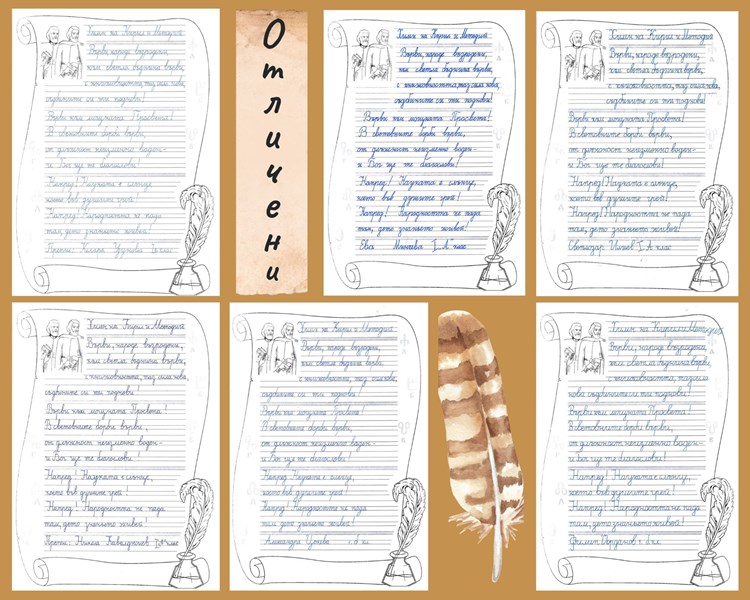 Химн на Кирил и Методий
Върви, народе възродени,
към светла бъднина върви,
с книжовността, таз сила нова,
съдбините си ти поднови!
Върви към мощната Просвета!
В световните борби върви,
от длъжност неизменно воден -
и Бог ще те благослови!
Напред! Науката е слънце,
което във душите грей!
Напред! Народността не пада
там, дето знаньето живей!
Отличени
Химн на Кирил и Методий
Върви, народе възродени,
към светла бъднина върви,
с книжовността, таз сила нова,
съдбините си ти поднови!
Върви към мощната Просвета!
В световните борби върви,
от длъжност неизменно воден -
и Бог ще те благослови!
Напред! Науката е слънце,
което във душите грей!
Напред! Народността не пада
там, дето знаньето живей!
Ева
Химн на Кирил и Методий
Върви, народе възродени,
към светла бъднина върви,
с книжовността, таз сила нова,
съдбините си ти поднови!
Върви към мощната Просвета!
В световните борби върви,
от длъжност неизменно воден -
и Бог ще те благослови!
Напред! Науката е слънце,
което във душите грей!
Напред! Народността не пада
там, дето знаньето живей!
Светлозар Илиев I А клас
Химн на Кирил и Методий
Върви, народе възродени,
към светла бъднина върви,
с книжовността, таз сила нова,
съдбините си ти поднови!
Върви към мощната Просвета!
В световните борби върви,
от длъжност неизменно воден -
и Бог ще те благослови!
Напред! Науката е слънце,
което във душите грей!
Напред! Народността не пада
там, дето знаньето живей!
клас
Химн на Кирил и Методий
Върви, народе възродени,
към светла бъднина върви,
с книжовността, таз сила нова,
съдбините си ти поднови!
Върви към мощната Просвета!
В световните борби върви,
от длъжност неизменно воден -
и Бог ще те благослови!
Напред! Науката е слънце,
което във душите грей!
Напред! Народността не пада
там, дето знаньето живей!
Александра кл.
Химн на Кирил и Методий
Върви, народе възродени,
към светла бъднина върви,
с книжовността, таз сила
нова съдбините си ти поднови!
Върви към мощната Просвета!
В световните борби върви,
от длъжност неизменно воден -
и Бог ще те благослови!
Напред! Науката е слънце,
което във душите грей!
Напред! Народността не пада
там, дето знаньето живей!
Филип Йорданов кл.